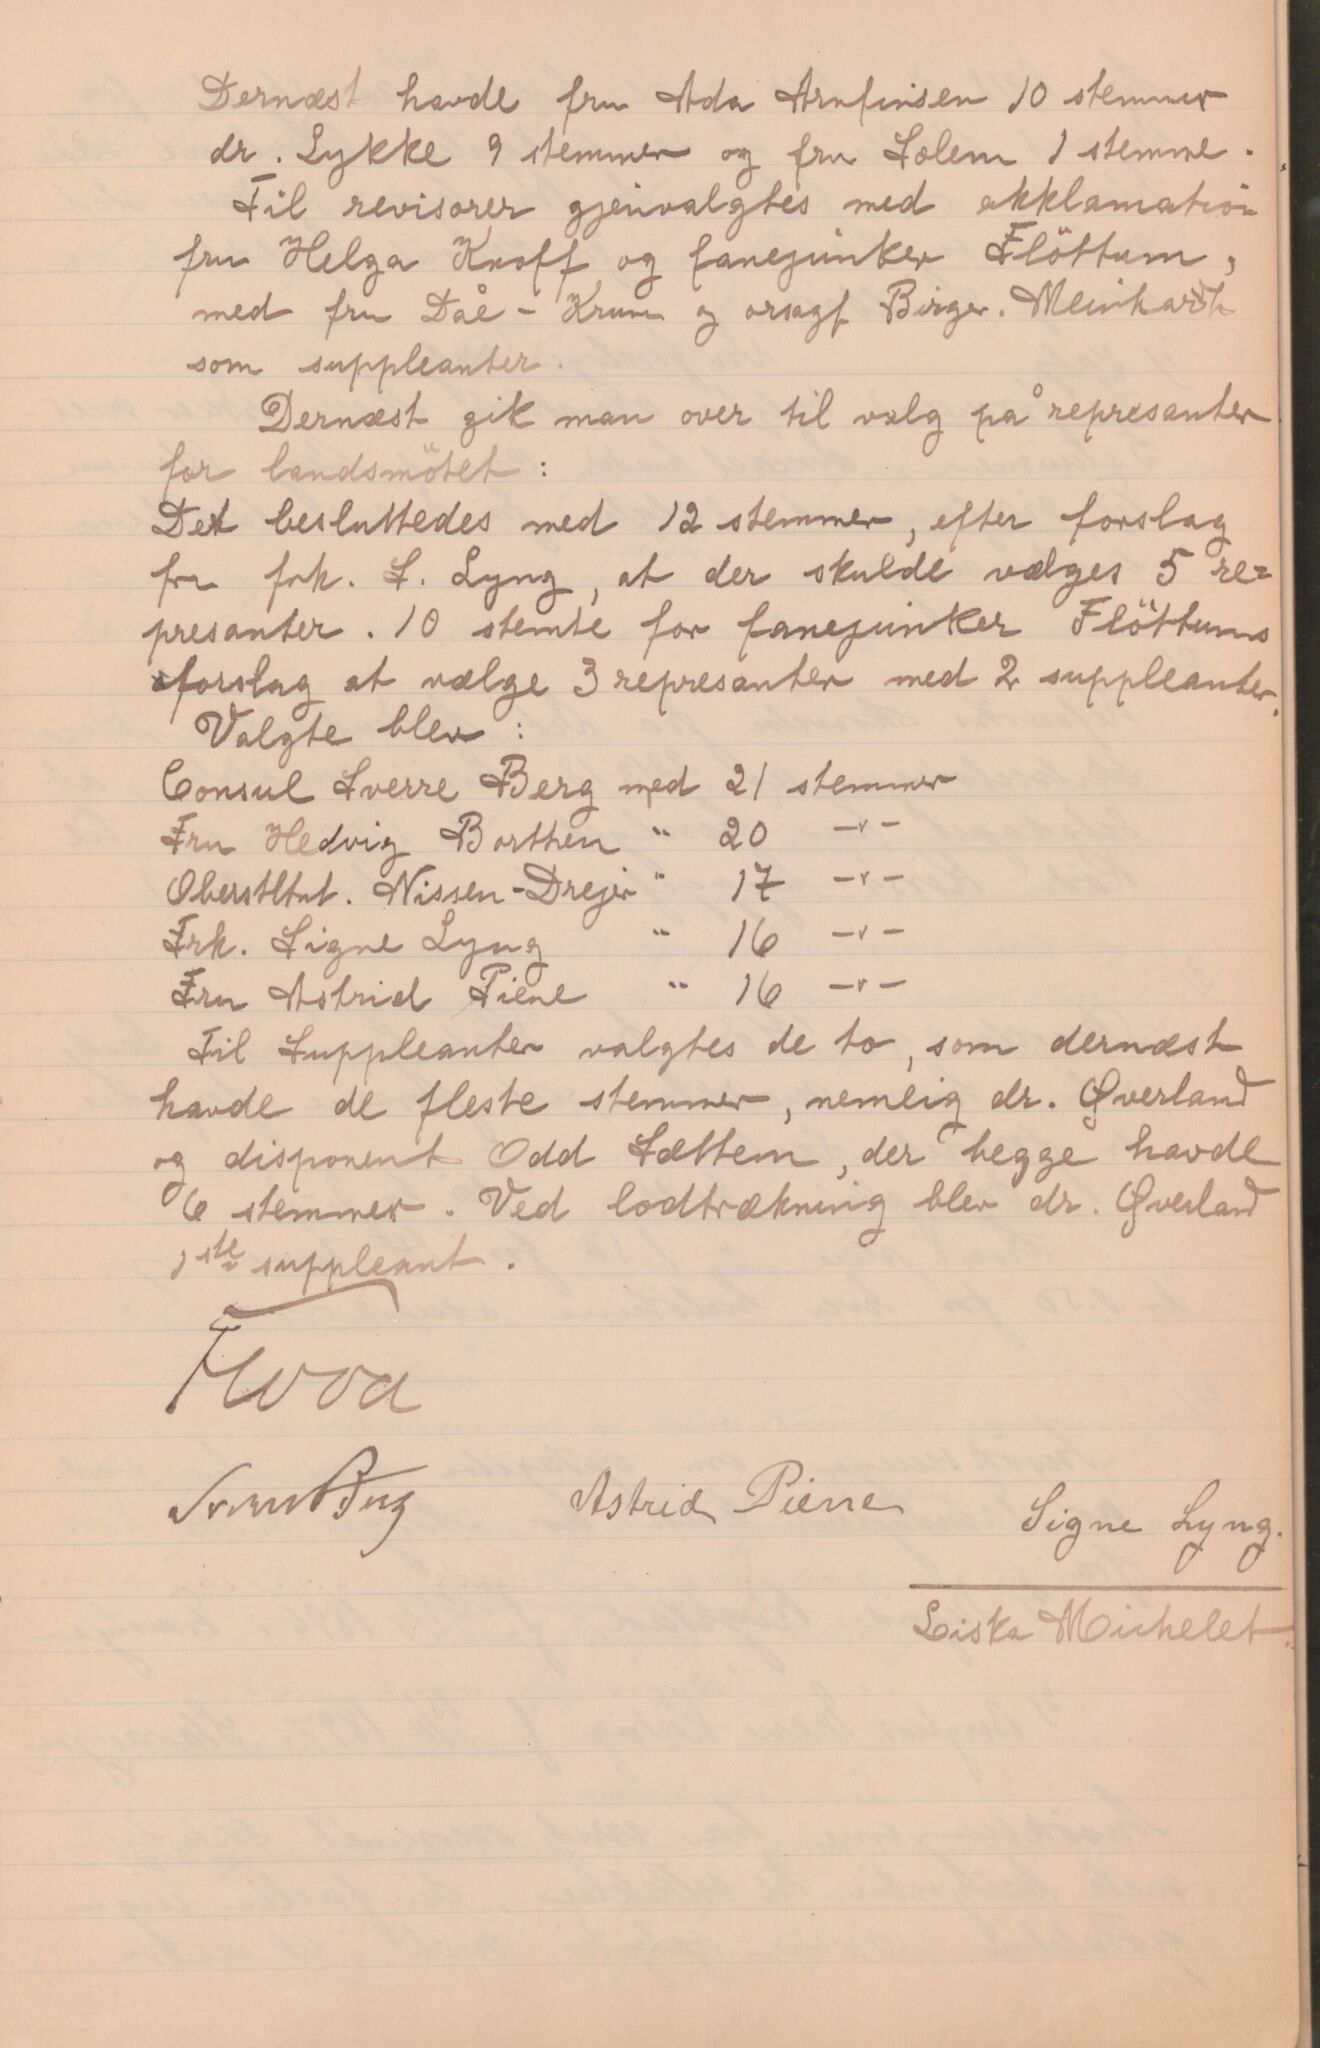 Dernæst havde fru Ada Arnfinsen 10 stemmer
dr. Lykke 9 stemmer og fru Solem 1 stemme.
Til revisorer gjenvalgtes med akklamation
fru Helga Knoff og fanejunker Flöttum,
med fru Dåe - Krum og orsagf. Birger. Meinhardt
som suppleanter.
Dernæst gik man over til valg på represanter
for landsmötet :
Det besluttedes med 12 stemmer, efter forslag
fra frk. S. Lyng, at der skulde vælges 5 re-
presanter. 10 stemte for fanejunker Flöttums
forslag at vælge 3 represanter med 2 suppleanter.
Valgte blev :
Consul Sverre Berg med 21 stemmer
Fru Hedvig Borthen " 20 -"-
Oberstltnt. Nissen-Drejer " 17 -"-
Frk. Signe Lyng " 16 -"-
Fru Astrid Piene " 16 -"-
Til Suppleanter valgtes de to, som dernæst
havde de fleste stemmer, nemlig dr. Øverland
og disponent Odd Sættem, der begge havde
6 stemmer. Ved lodtrækning blev dr. Øverland
1ste suppleant.
Sverre Berg Astrid Piene Signe Lyng.
Liska Michelet.